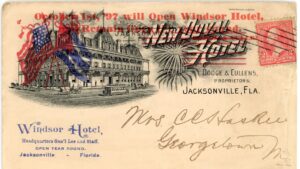 October 1st, '97 will Open Windsor Hotel,
Remain
NEW DUVAL
HOTEL
DODGE & CULLENS,
PROPRIETORS.
JACKSONVILLE, FLA.
Windsor Hotel,
Headquarters Gen'l Lee and Staff.
OPEN YEAR ROUND.
Jacksonville - Florida.
Mrs C C Haskell
Georgetown